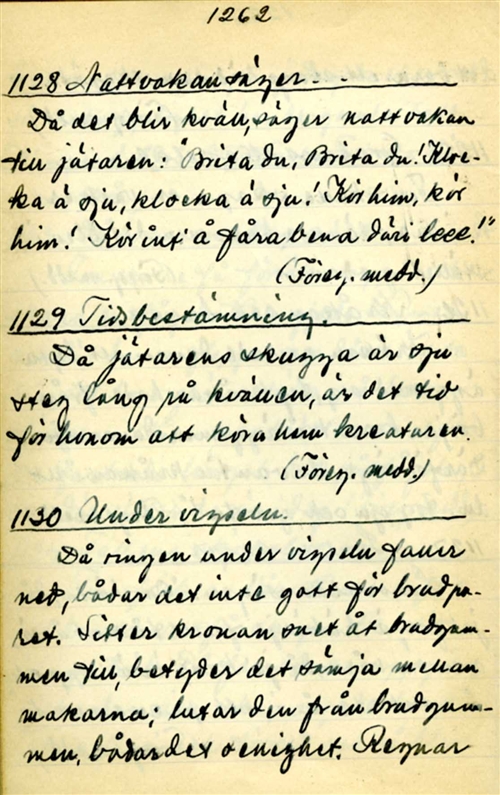 1262
1128 Nattvakan säger. - -
Då det blir kväll, säger nattvakan
till jätaren: "Brita du, Brita du! Kloc-
ka å sju, klocka å sju! Kör him, kör
him! Kör int å fåra bena däri leee!"
(Föreg. medd.)
1129 Tidsbestämning.
Då jätarens skugga är sju
steg lång på kvällen, är det tid
för honom att köra hem kreaturen.
(Föreg. medd.)
1130 Under vigseln.
Då ringen under vigseln faller
ned, bådar det inte gott för brudpa-
ret. Sitter kronan snet åt brudgum-
men till, betyder det sämja mellan
makarna; lutar den från brudgum-
men, bådar det oenighet. Regnar